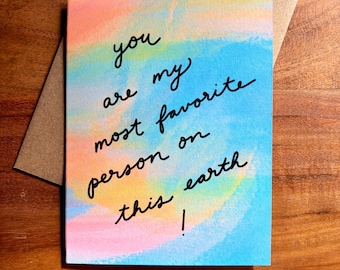 you
are my
most favorite
person on
this earth
!